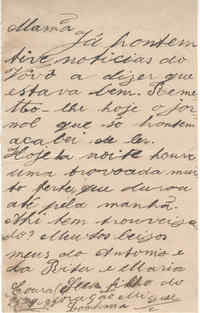 Mamã
Já hontem
tive noticias do
Jóvo a dizer que
estava bem. Reme
tto-lhe hoje o jor
nal que só hontem
acabei de ler.
Hoje á noite houve
uma trovoada mui
to forte, que durou
até pela manhã.
Ahi tem trouveija
do? Muitos beijos
meus do Antonio e
da Rita e Maria
Seu filho do
coração Miguel